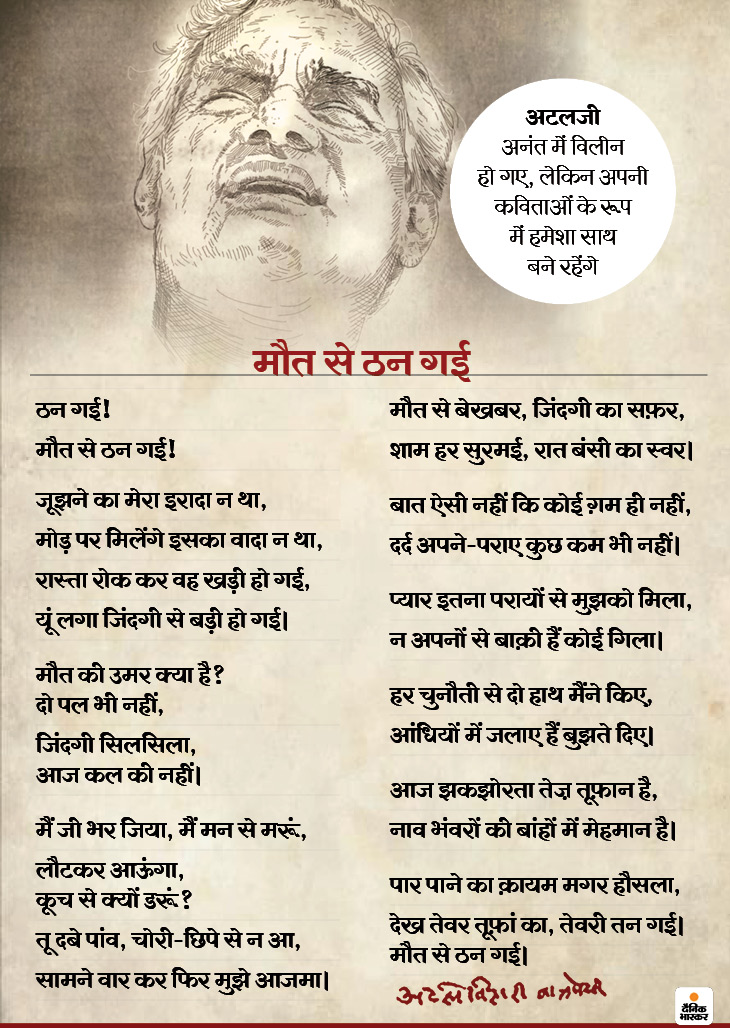 अटलजी
अनंत में विलीन
हो गए, लेकिन अपनी
कविताओं के रूप
में हमेशा साथ
बने रहेंगे
मौत से ठन गई
ठन गई!
मौत से ठन गई!
जूझने का मेरा इरादा न था,
मोड़ पर मिलेंगे इसका वादा न था,
रास्ता रोक कर वह खड़ी हो गई,
यूं लगा जिंदगी से बड़ी हो गई।
मौत की उमर क्या है?
दो पल भी नहीं,
जिंदगी सिलसिला,
आज कल की नहीं।
मैं जी भर जिया, मैं मन से मरूं,
लौटकर आऊंगा,
कूच से क्यों डरूं?
तू दबे पांव, चोरी-छिपे से न आ,
सामने वार कर फिर मुझे आजमा।
मौत से बेखबर, जिंदगी का सफ़र,
शाम हर सुरमई, रात बंसी का स्वर।
बात ऐसी नहीं कि कोई ग़म ही नहीं,
दर्द अपने-पराए कुछ कम भी नहीं।
प्यार इतना परायों से मुझको मिला,
न अपनों से बाक़ी हैं कोई गिला।
हर चुनौती से दो हाथ मैंने किए,
आंधियों में जलाए हैं बुझते दिए।
आज झकझोरता तेज़ तूफ़ान है,
नाव भंवरों की बांहों में मेहमान है।
पार पाने का क़ायम मगर हौसला,
देख तेवर तूफ़ां का, तेवरी तन गई।
मौत से ठन गई।
अटल बिहारी वाजपेयी
दैनिक
भास्कर